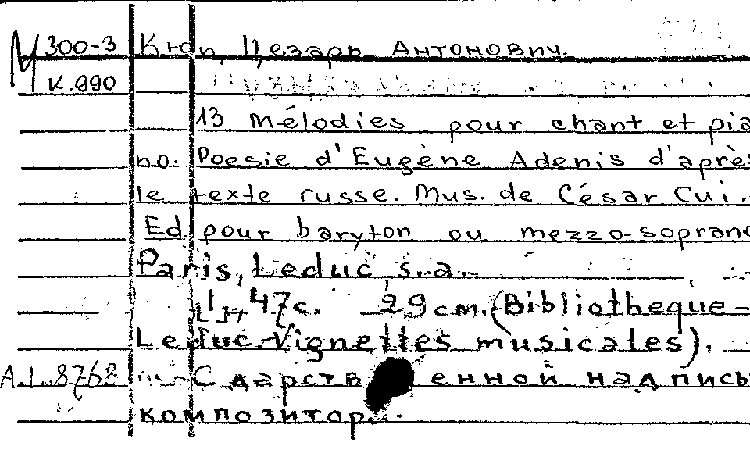 М 300-3 Кюи, Цезарь Антонович.
К.990
13 Mélodies pour chant et pia
no. Poesie d'Eugène Adenis d'aprè
le texte russe. Mus. de César Cui.
Ed. pour baryton ou mezzo-soprano
Paris, Leduc, s.a.
47с. 29 см. (Bibliotheque-
Leduc. Vignettes musicales).
A.L.8768 С дарственной надпись
композитора.